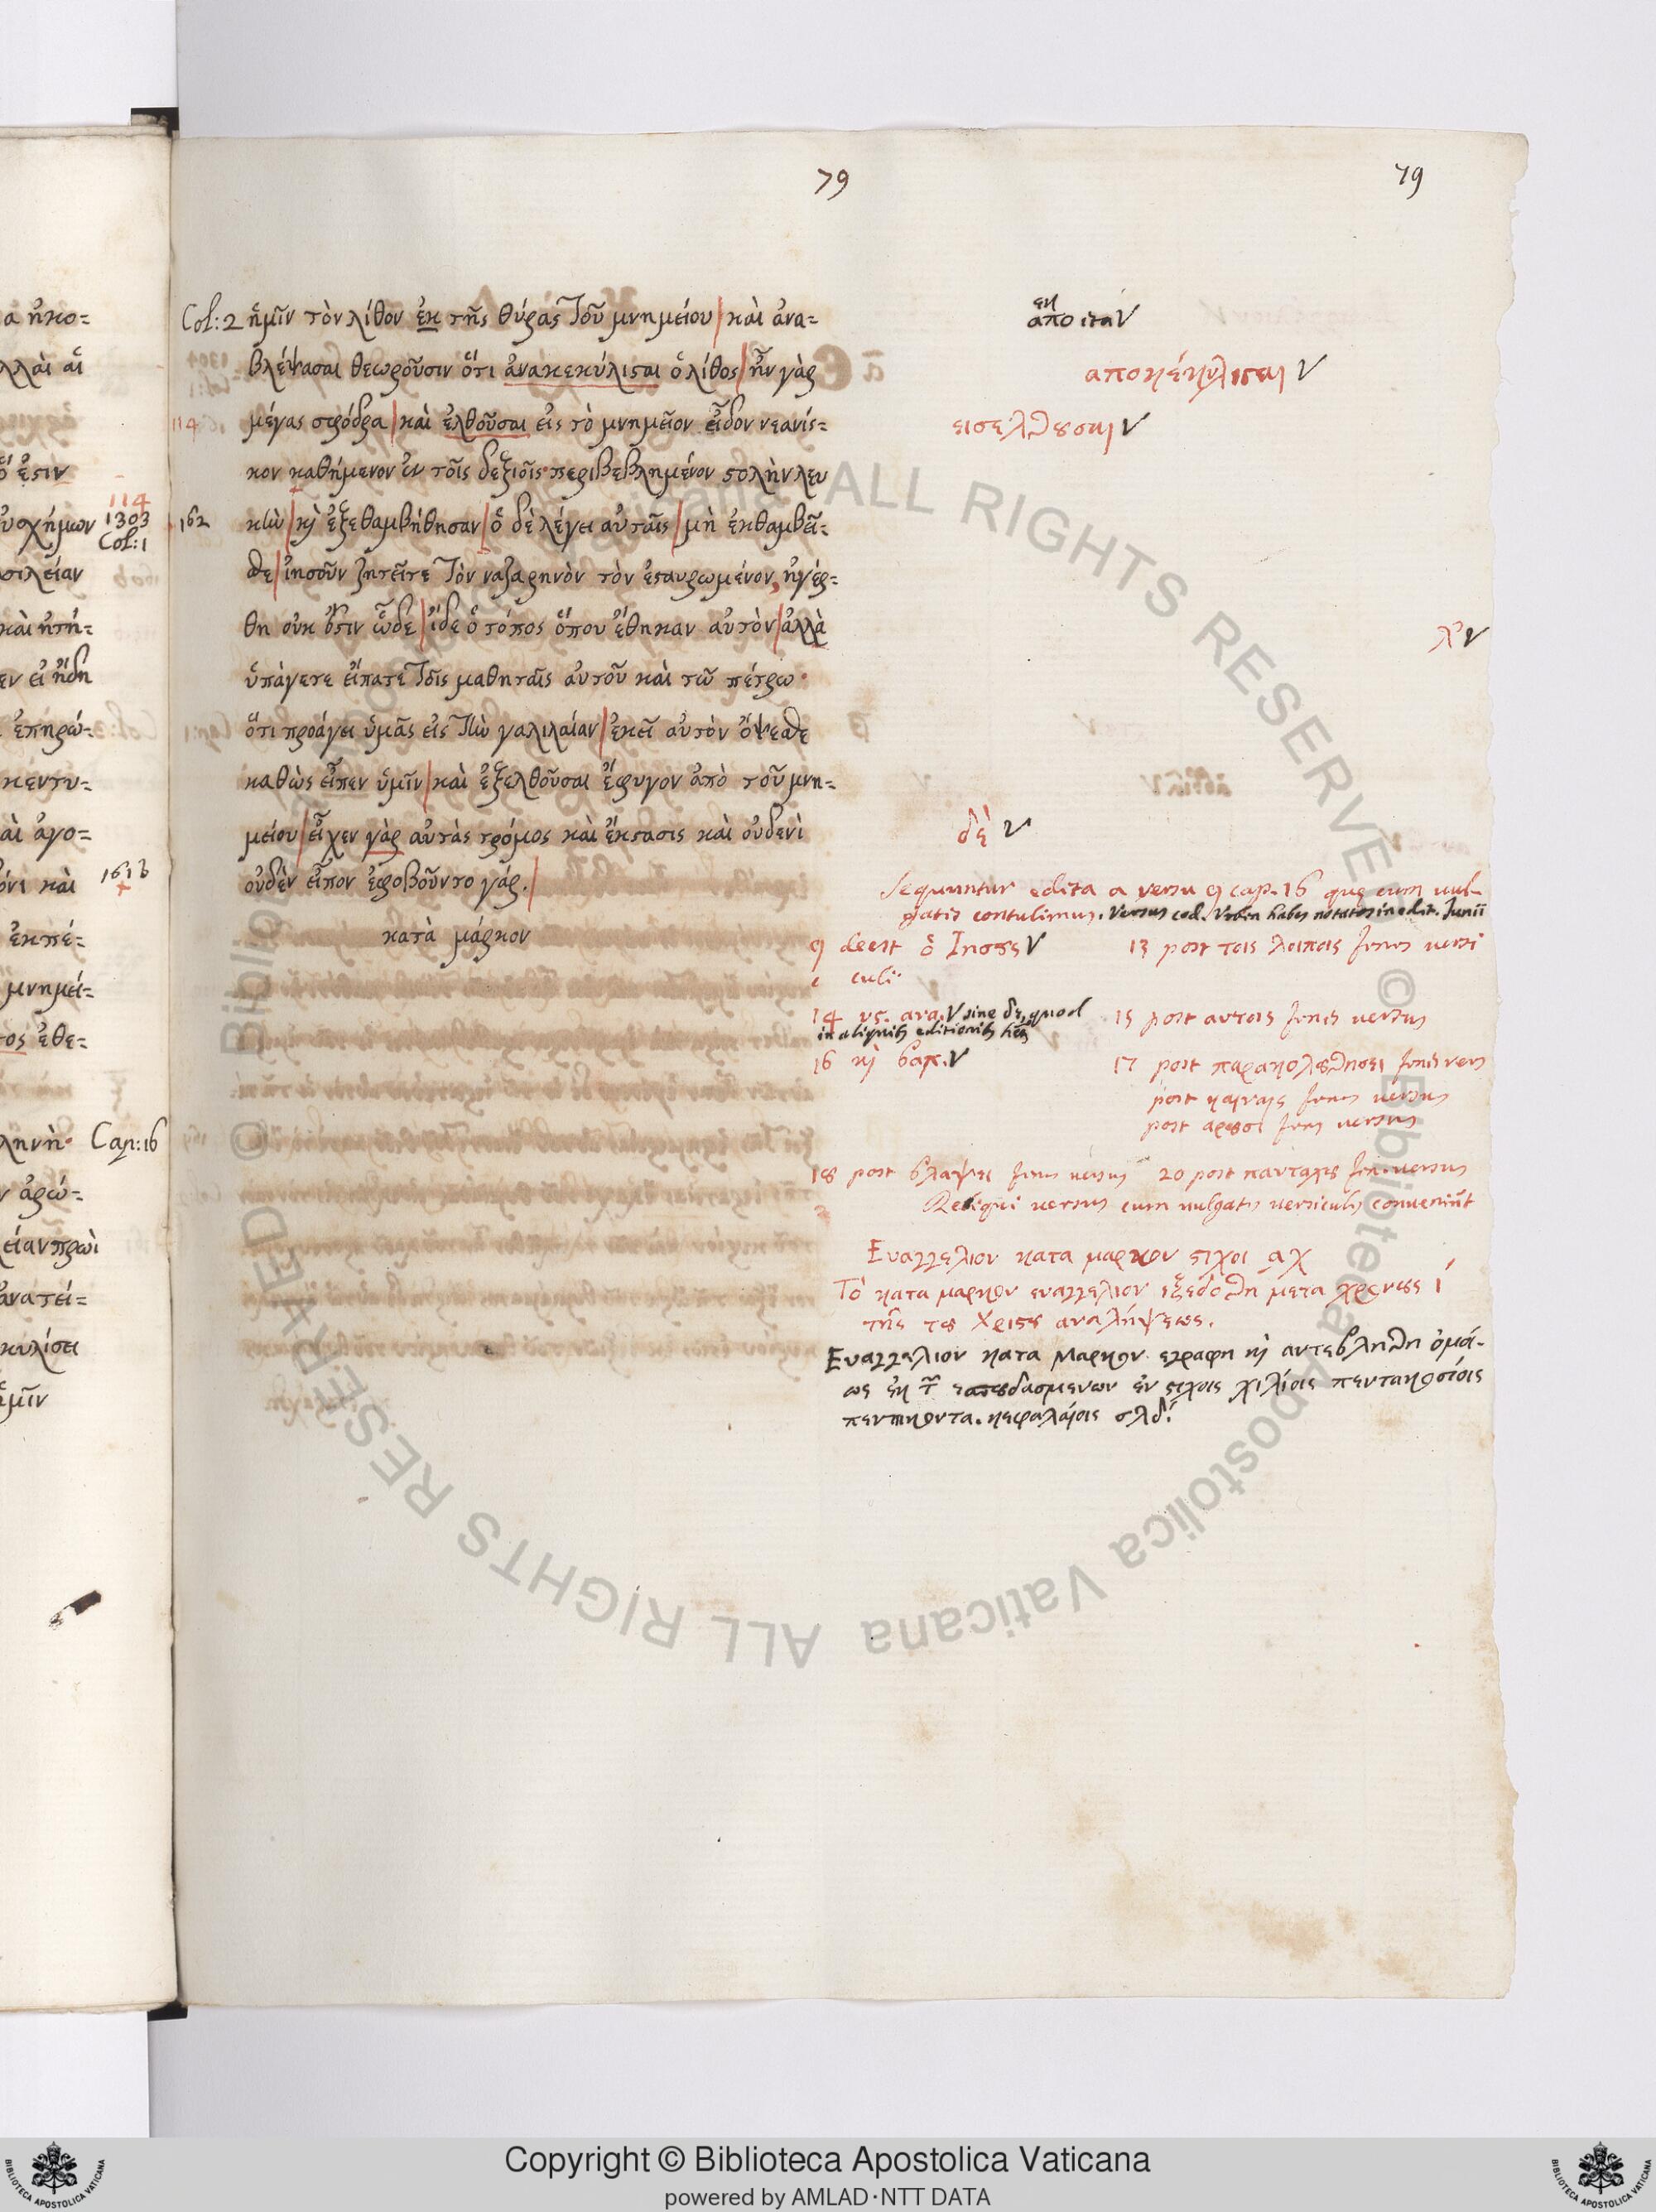 79
79
Col: 2 ἡμῖν τὸν λίθον ἐκ τῆς θύρας τοῦ μνημείου | καὶ ἀνα=
βλέψασαι θεωροῦσιν ὅτι ἀνακεκύλισται ὁ λίθος | ἦν γὰρ
114 μέγας σφόδρα | καὶ ἐλθοῦσαι εἰς τὸ μνημεῖον εἶδον νεανίσ=
κον καθήμενον ἐν τοῖς δεξιοῖς περιβεβλημένον στολὴν λευ
162 κὴν | καὶ ἐξεθαμβήθησαν | ὁ δὲ λέγει αὐταῖς | μὴ ἐκθαμβεῖ=
σθε | ἰησοῦν ζητεῖτε τὸν ναζαρηνὸν τὸν ἐσταυρωμένον, ἠγέρ=
θη οὐκ ἔστιν ὧδε | ἴδε ὁ τόπος ὅπου ἔθηκαν αὐτὸν | ἀλλὰ
ὑπάγετε εἴπατε τοῖς μαθηταῖς αὐτοῦ καὶ τῶ πέτρω
ὅτι προάγει ὑμᾶς εἰς τὴν γαλιλαίαν | ἐκεῖ αὐτὸν ὄψεσθε
καθὼς εἶπεν ὑμῖν | καὶ ἐξελθοῦσαι ἔφυγον ἀπὸ τοῦ μνη=
μείου | εἶχεν γὰρ αὐτὰς τρόμος καὶ ἔκστασις καὶ οὐδενὶ
οὐδὲν εἶπον ἐφοβοῦντο γάρ. |
κατὰ μάρκον
εκ
απο
αποκέκυλισται V
εισελθουσαι V
λ' V
δὲ V
Sequuntur edita a versu 9 cap. 16 quę cum vul-
gatis contulimus. Versus cod. Urbin habes notatos in edit. Junii
9 deest ὁ Ιησους V
13 post τοις λοιποις finis versi
culi
14 υς. ανα. V sine δε, quod
in aliquib editionib
15 post αυτοις finis versus
16 καὶ βαπ. V
17 post παρακολουθησει finis vers
post καιναις finis versus
post αρουσι finis versus
18 post βλαψει finis versus
20 post πανταχου fin. versus
Reliqui versus cum vulgatis versiculis conveniunt
Ευαγγελιον κατα μαρκον στιχοι αχ
Τὸ κατα μαρκον ευαγγελιον ἐξεδοθη μετα χρονους ί
τῆς του Χριστου αναλήψεως.
Ευαγγελιον κατα Μαρκον εγραφη καὶ αντεβληθη ὁμοί-
ως ἐκ τῶν εσπουδασμενων ἐν στιχοις χιλίοις πεντακοσίοις
πεντηκοντα. κεφαλαίοις σλδ.
α ἠκο=
λλαὶ αἱ
ἐστιν
114
εὐσχήμων 1303
Col: 1
σιλείαν
καὶ ἠτή=
εν εἰ ἤδη
ἐπηρώ=
κεντυ=
αὶ ἀγο=
όνι καὶ
ἐκπέ=
μνημεί=
τος ἐθε=
ληνὴ Cap: 16
ν ἀρώ=
είαν πρωὶ
ἀνατεί=
κυλίσει
ἡμῖν
© Biblioteca Apostolica Vaticana ALL RIGHTS RESERVED
© Biblioteca Apostolica Vaticana ALL RIGHTS RESERVED
Copyright © Biblioteca Apostolica Vaticana
powered by AMLAD·NTT DATA
BIBLIOTECA APOSTOLICA VATICANA
BIBLIOTECA APOSTOLICA VATICANA